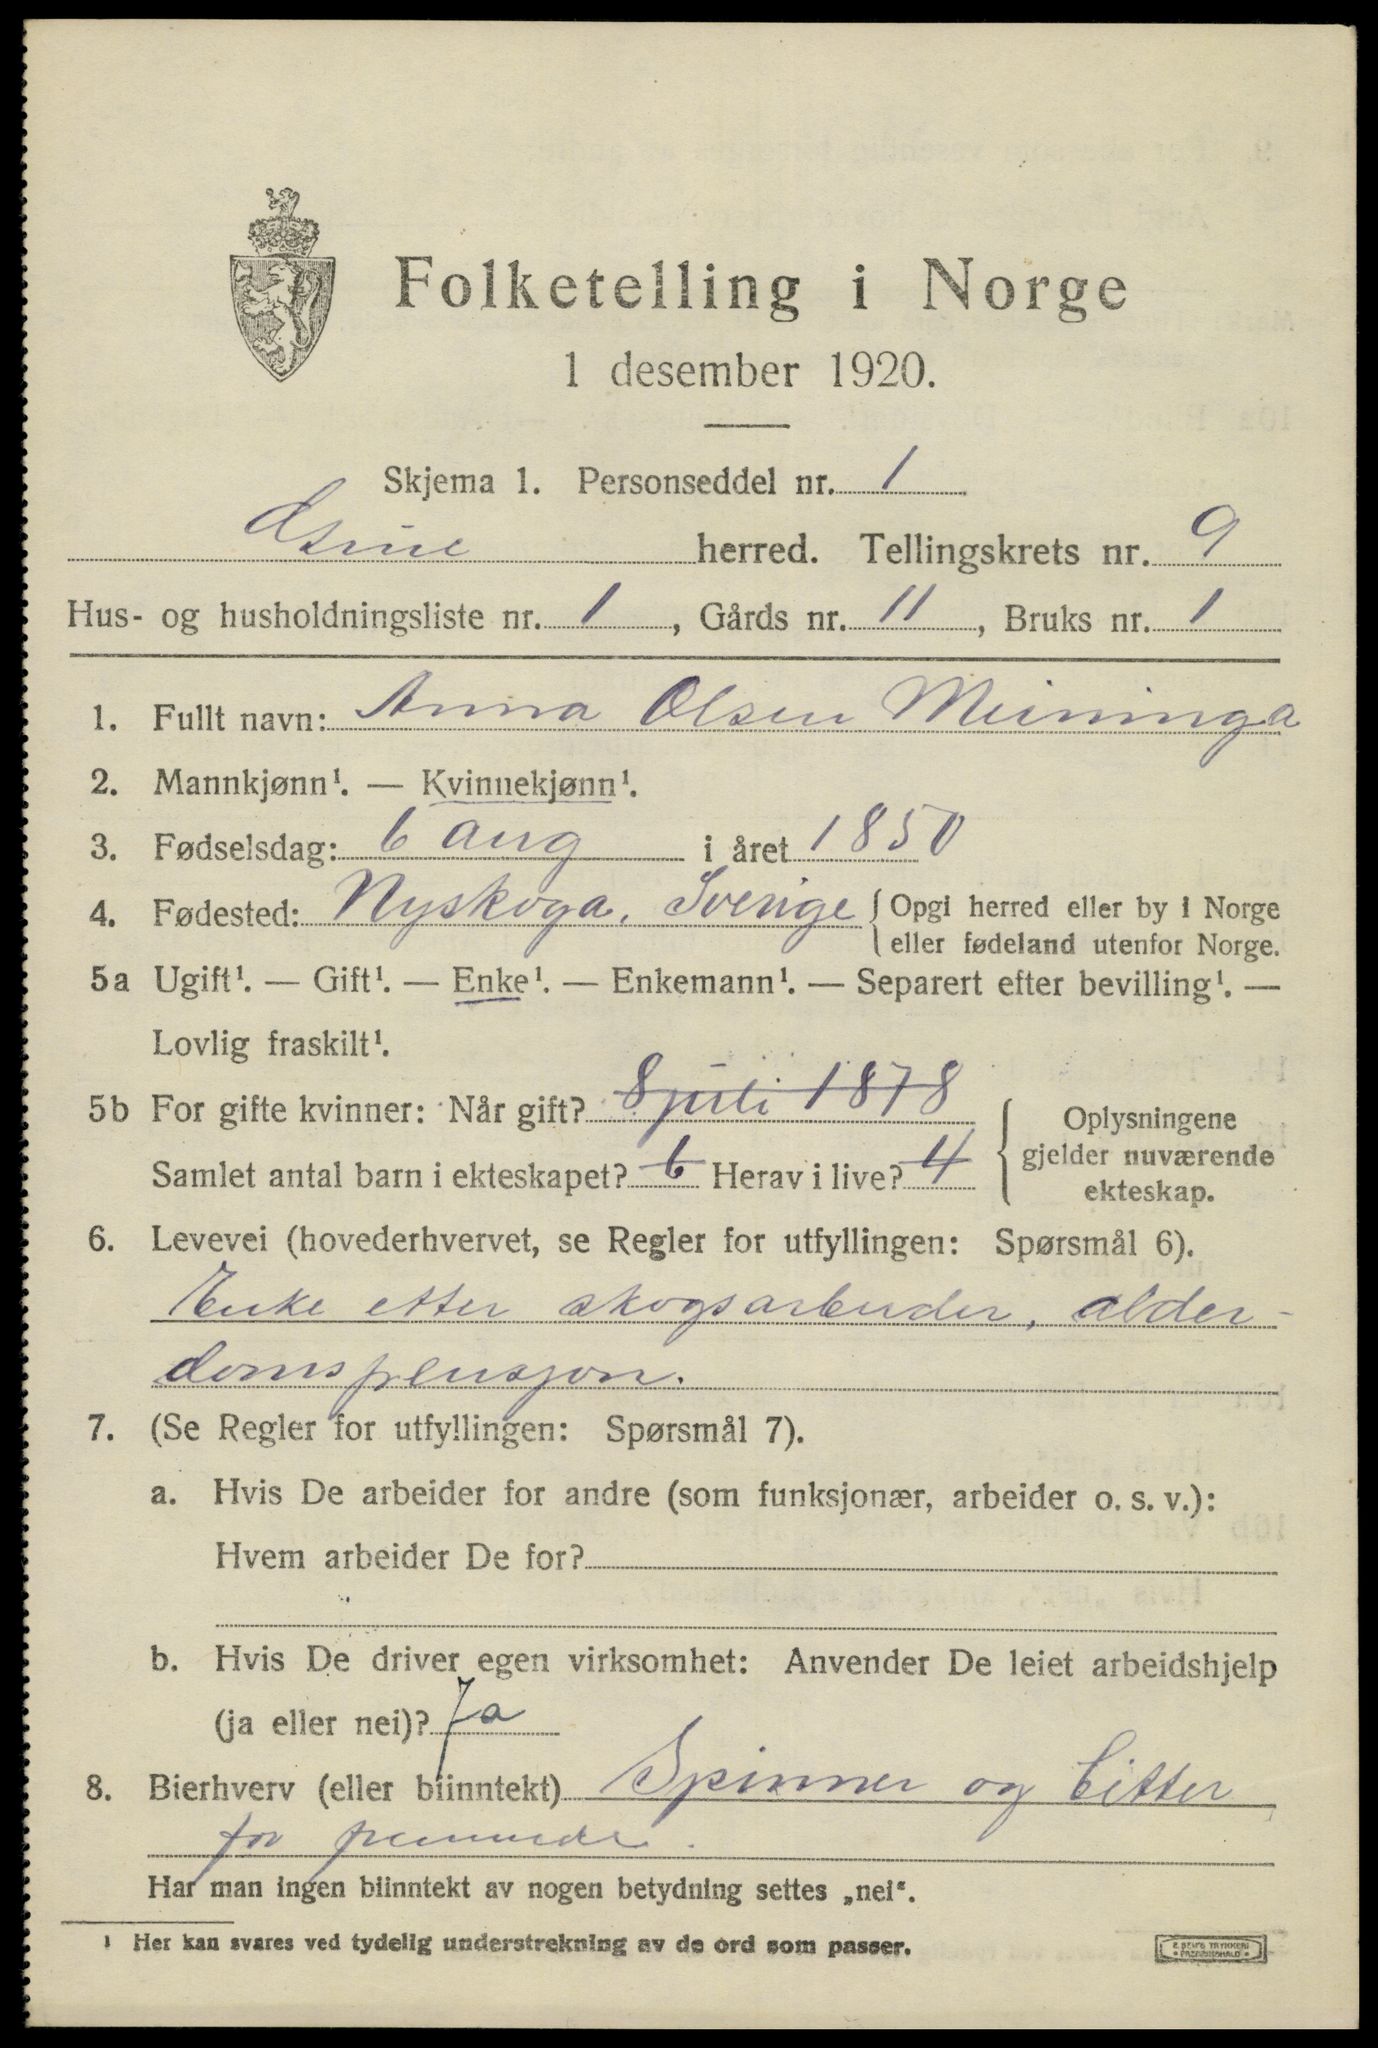 Folketelling i Norge
1 desember 1920.
Skjema 1. Personseddel nr. 1
herred. Tellingskrets nr. 9
Hus- og husholdningsliste nr. 1, Gårds nr. 11, Bruks nr. 1
1. Fullt navn: Anna Olsen
2. Mannkjønn¹. — Kvinnekjønn¹.
3. Fødselsdag: 6 aug i året 1850
4. Fødested: Nyskoga, Sverige { Opgi herred eller by i Norge
eller fødeland utenfor Norge.
5a Ugift¹. — Gift¹. — Enke¹. — Enkemann¹. — Separert efter bevilling¹. —
Lovlig fraskilt¹.
5b For gifte kvinner: Når gift? 8 juli 1878
Samlet antal barn i ekteskapet? 6 Herav i live? 4
Oplysningene
gjelder nuværende
ekteskap.
6. Levevei (hovederhvervet, se Regler for utfyllingen: Spørsmål 6).
Enke etter skogsarbeider, alder-
domspensjon.
7. (Se Regler for utfyllingen: Spørsmål 7).
a. Hvis De arbeider for andre (som funksjonær, arbeider o. s. v.):
Hvem arbeider De for?
b. Hvis De driver egen virksomhet: Anvender De leiet arbeidshjelp
(ja eller nei)? Ja
8. Bierhverv (eller biinntekt) Spinner og
for fremmede.
Har man ingen biinntekt av nogen betydning settes „nei".
¹ Her kan svares ved tydelig understrekning av de ord som passer.